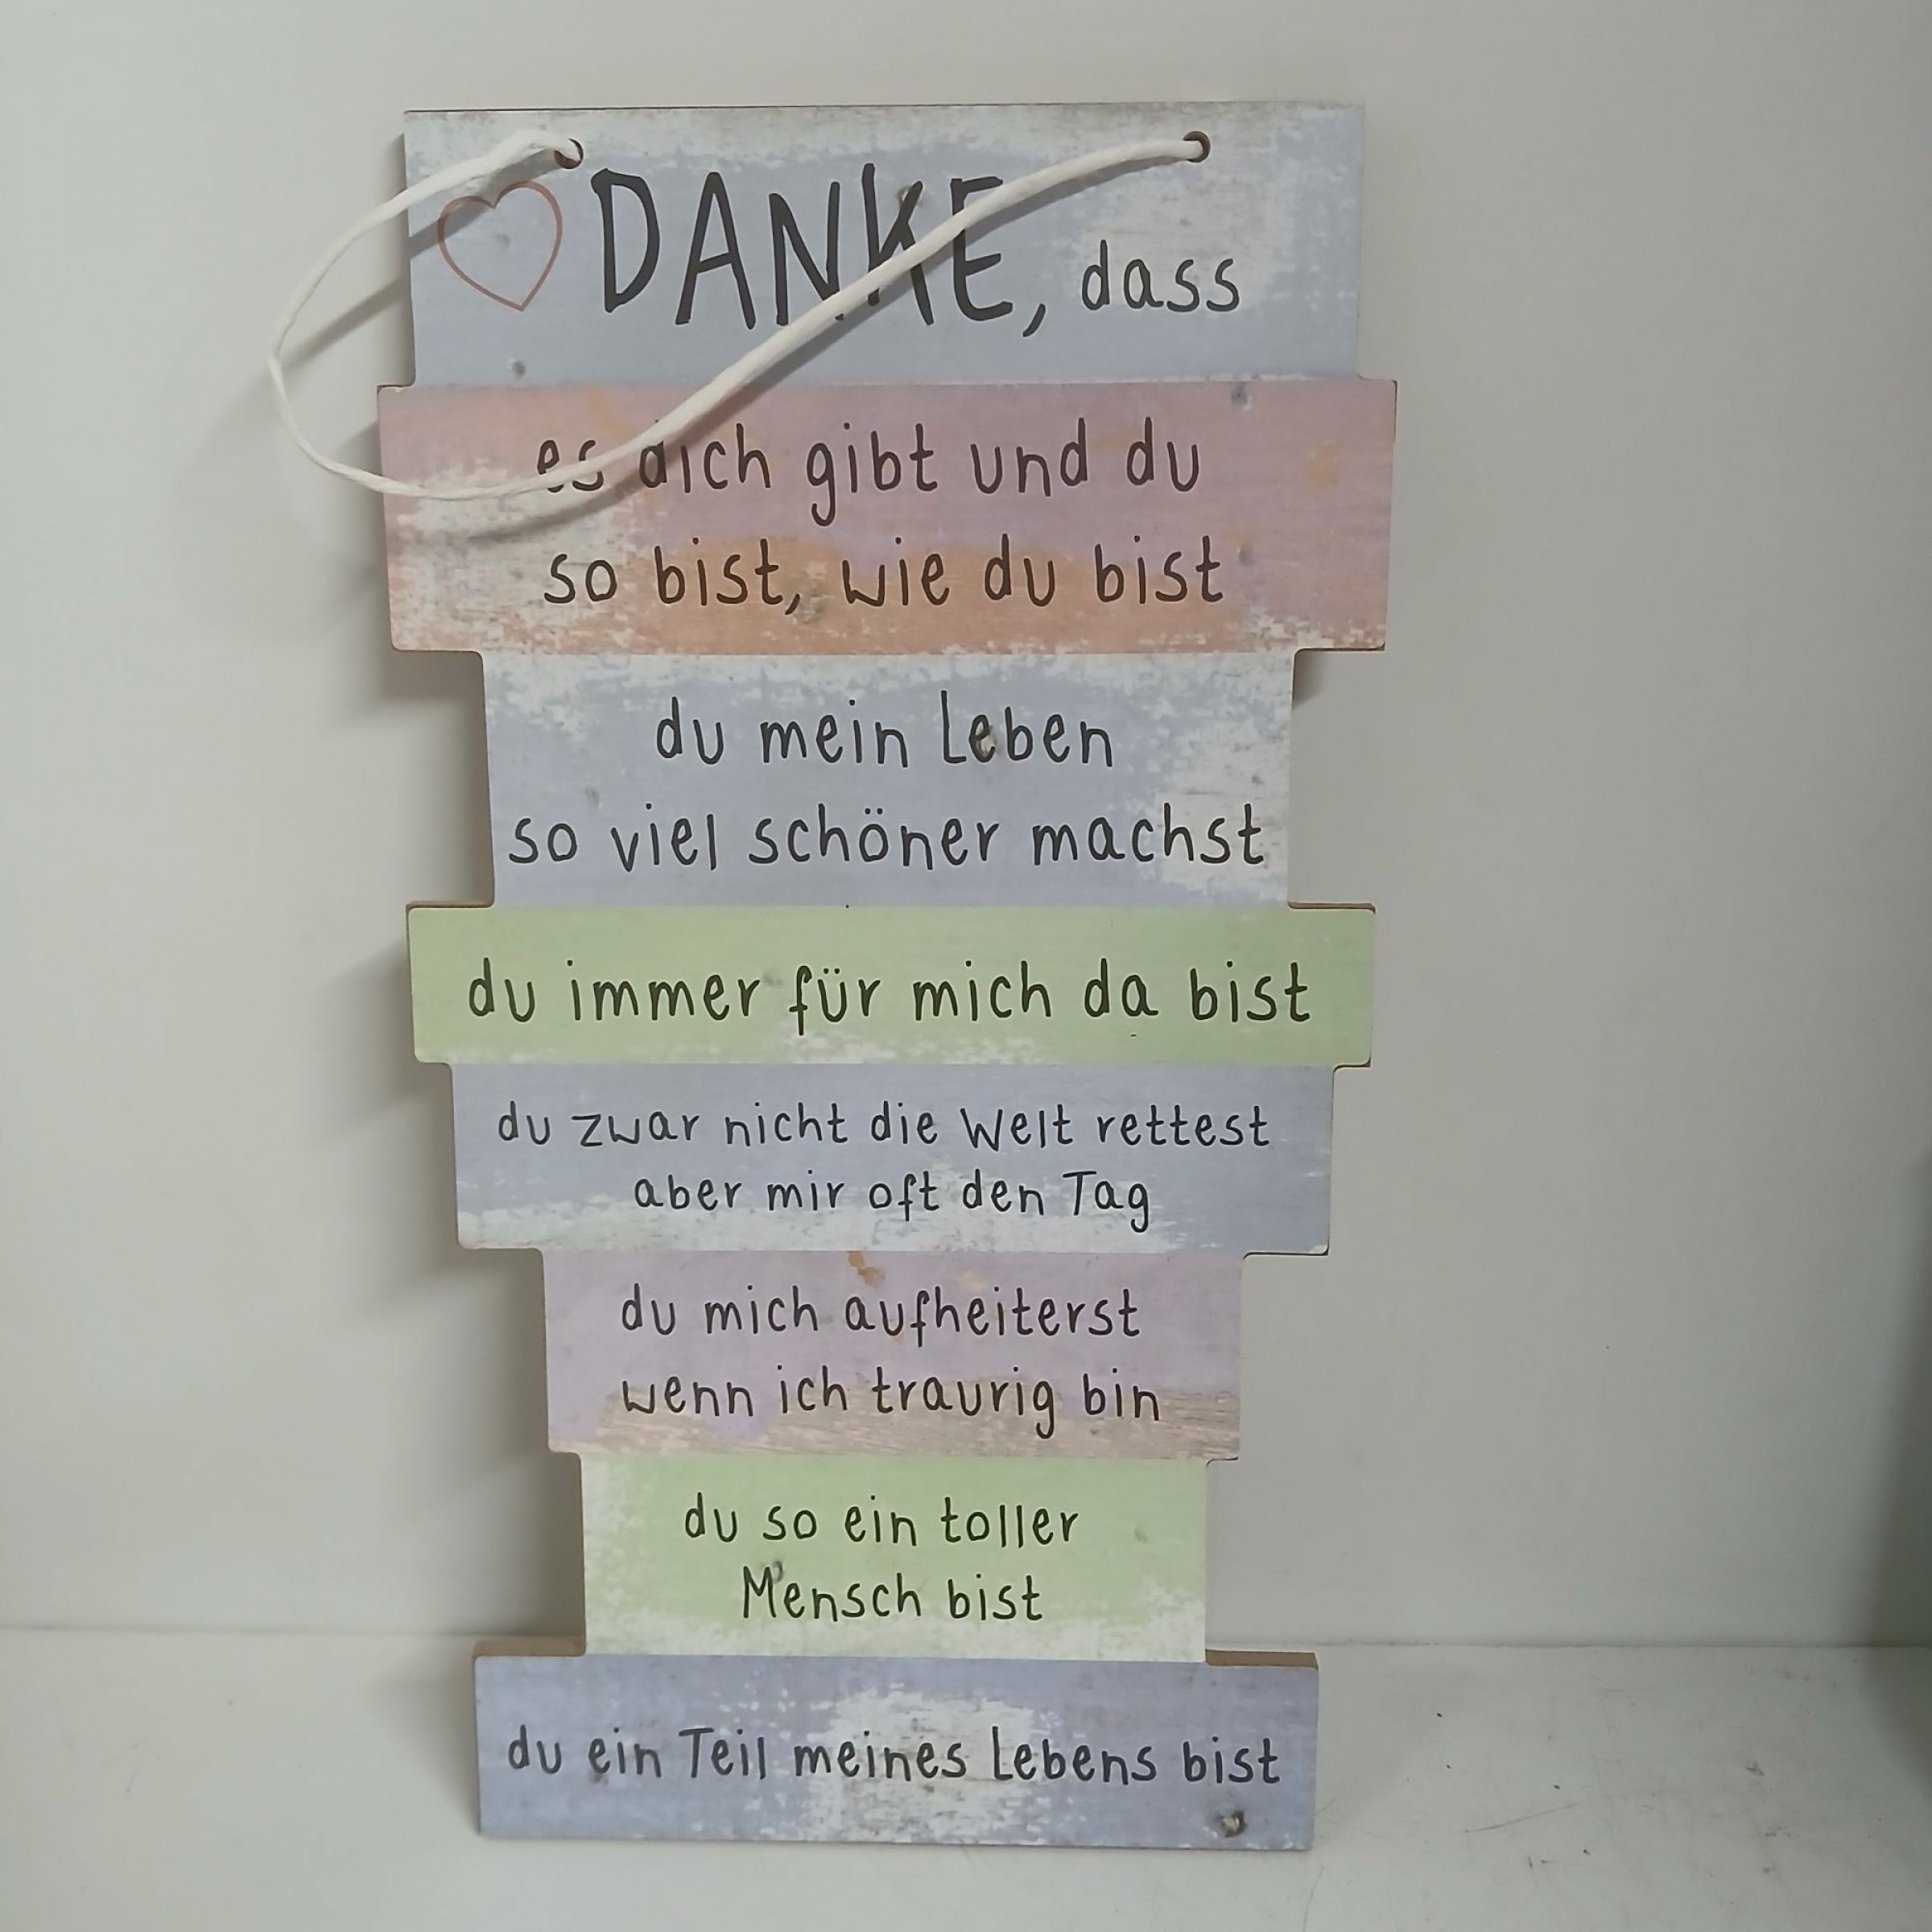 DANKE, dass
es dich gibt und du
so bist, wie du bist
du mein Leben
so viel schöner machst
du immer für mich da bist
du zwar nicht die Welt rettest
aber mir oft den Tag
du mich aufheiterst
wenn ich traurig bin
du so ein toller
Mensch bist
du ein Teil meines Lebens bist